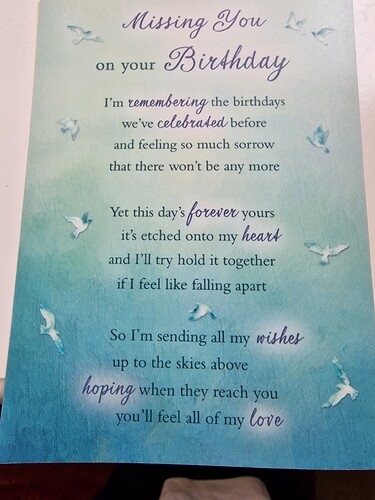 Missing You
on your Birthday
I'm remembering the birthdays
we've celebrated before
and feeling so much sorrow
that there won't be any more
Yet this day's forever yours
it's etched onto my heart
and I'll try hold it together
if I feel like falling apart
So I'm sending all my wishes
up to the skies above
hoping when they reach you
you'll feel all of my love